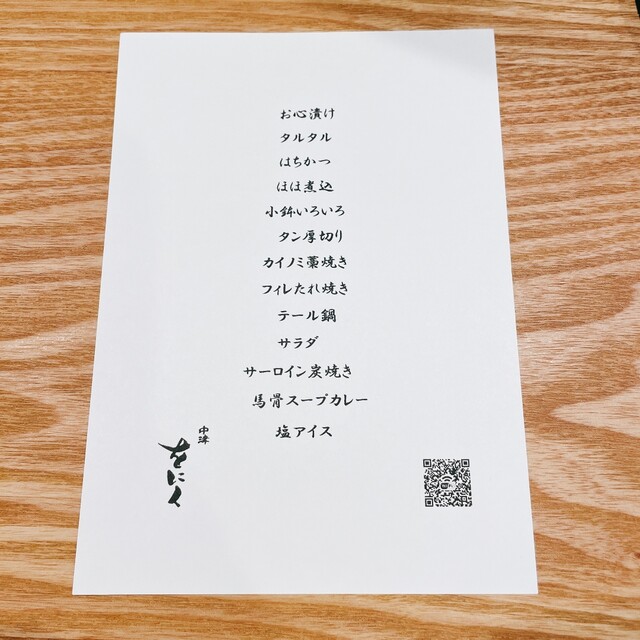 お心漬け
タルタル
はちかつ
ほほ煮込
小鉢いろいろ
タン厚切り
カイノミ藁焼き
フィレたれ焼き
テール鍋
サラダ
サーロイン炭焼き
馬骨スープカレー
塩アイス
中津
をにく